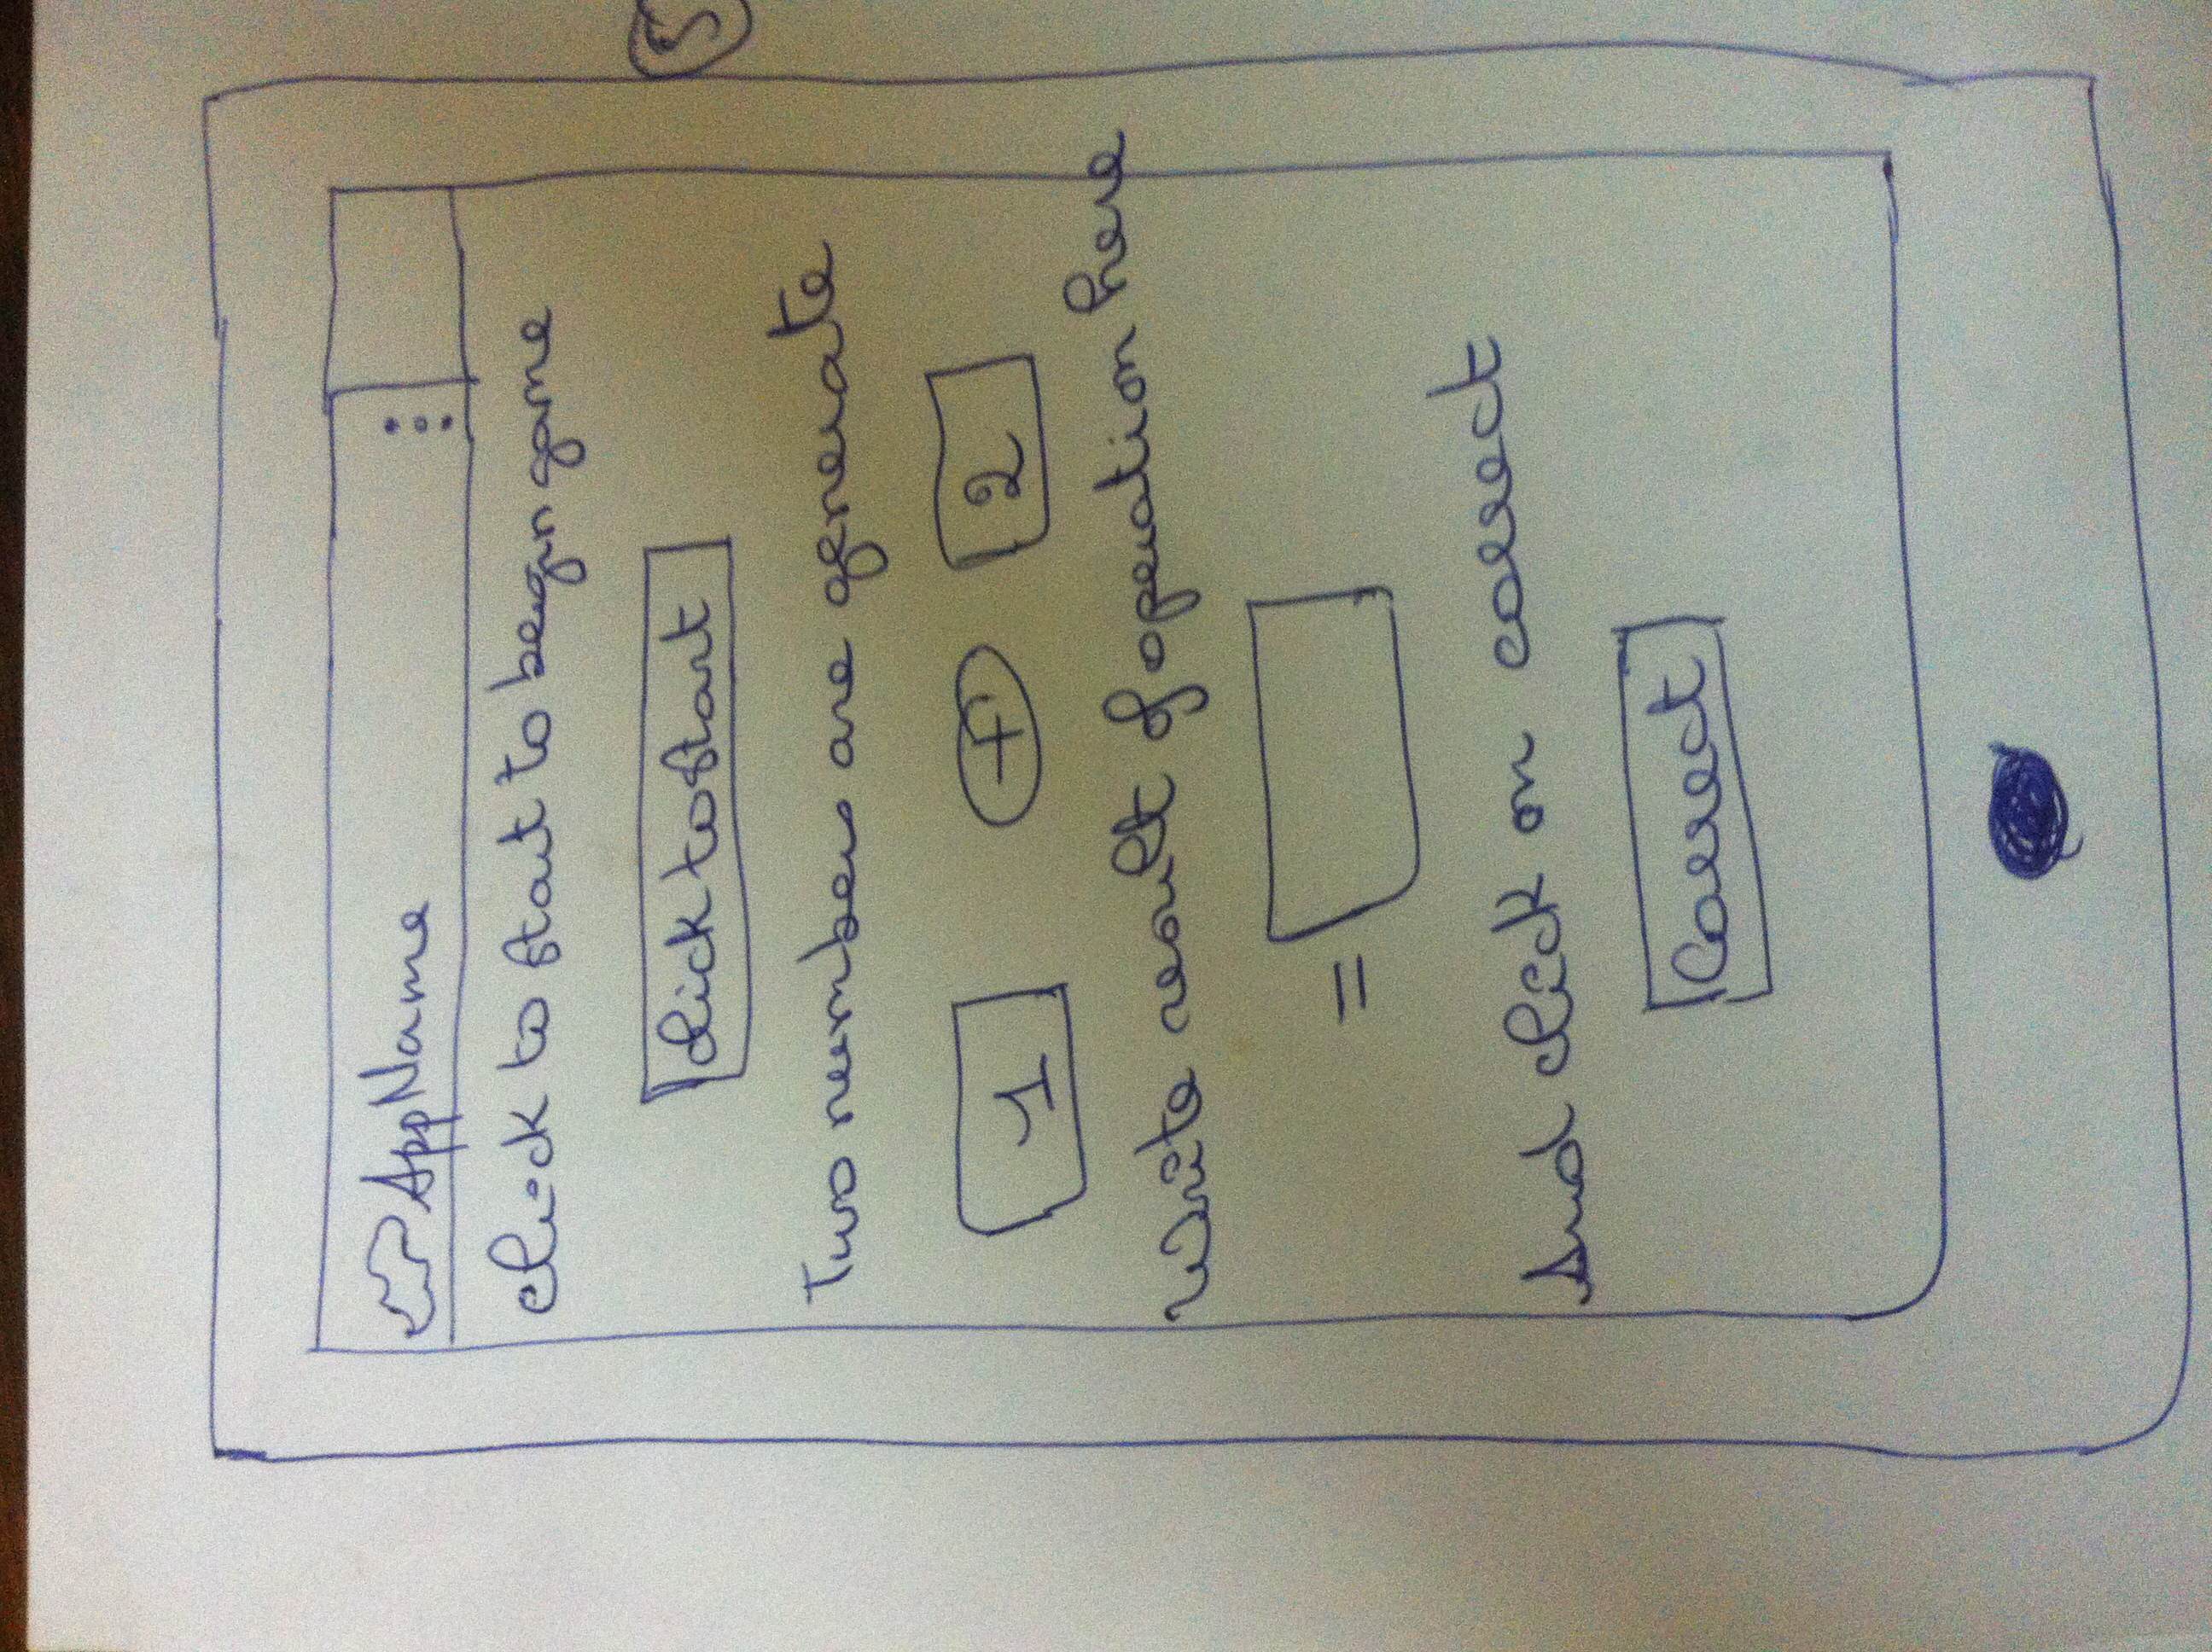 AppName
click to start to begin game
click to start
5
Two numbers are generate
1 + 2
Write result of operation here
=
And click on correct
Correct